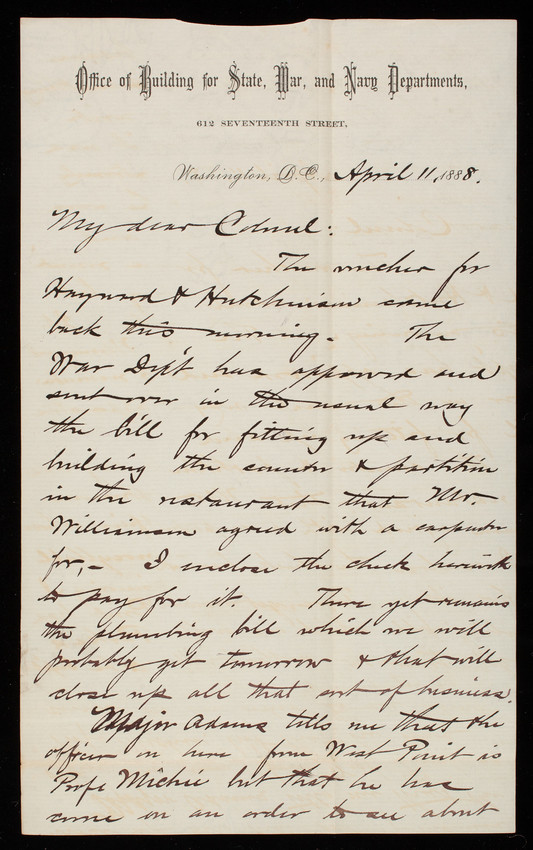 Office of Building for State, War, and Navy Departments,
612 SEVENTEENTH STREET,
Washington, D.C., April 11, 1888.
My dear Colonel:
The voucher for
Hayward & Hutchinson came
back this morning. The
War Dept has approved and
sent over in the usual way
the bill for fitting up and
building the counter & partition
in the restaurant that Mr.
Williamson agreed with a carpenter
for,- I enclose the check herewith
to pay for it. There yet remains
the plumbing bill which we will
probably get tomorrow & that will
close up all that sort of business.
Major Adams tells me that the
officer on here from West Point is
Profe Michie but that he has
come on an order to see about